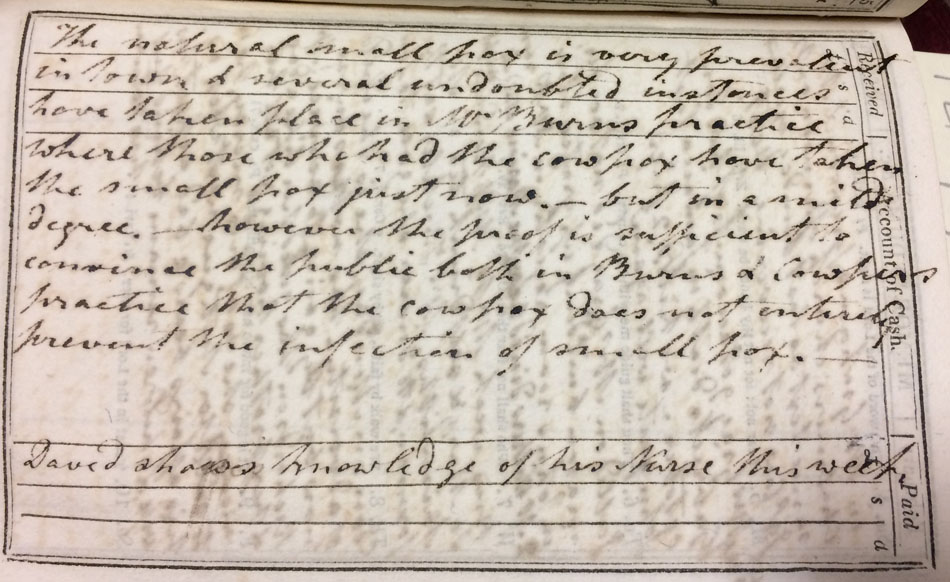 The natural small pox is very prevalent
in town & several undoubted instances
have taken place in Mr Burns practice
where those who had the cowpox have taken
the small pox just now. — but in a mild
degree. — however the proof is sufficient to
convince the public both in Burns & Cowpers
practice that the cowpox does not entirely
prevent the infection of small pox. —
David shows knowledge of his Nurse this week
Received
s d
Account of Cash.
Paid
s d